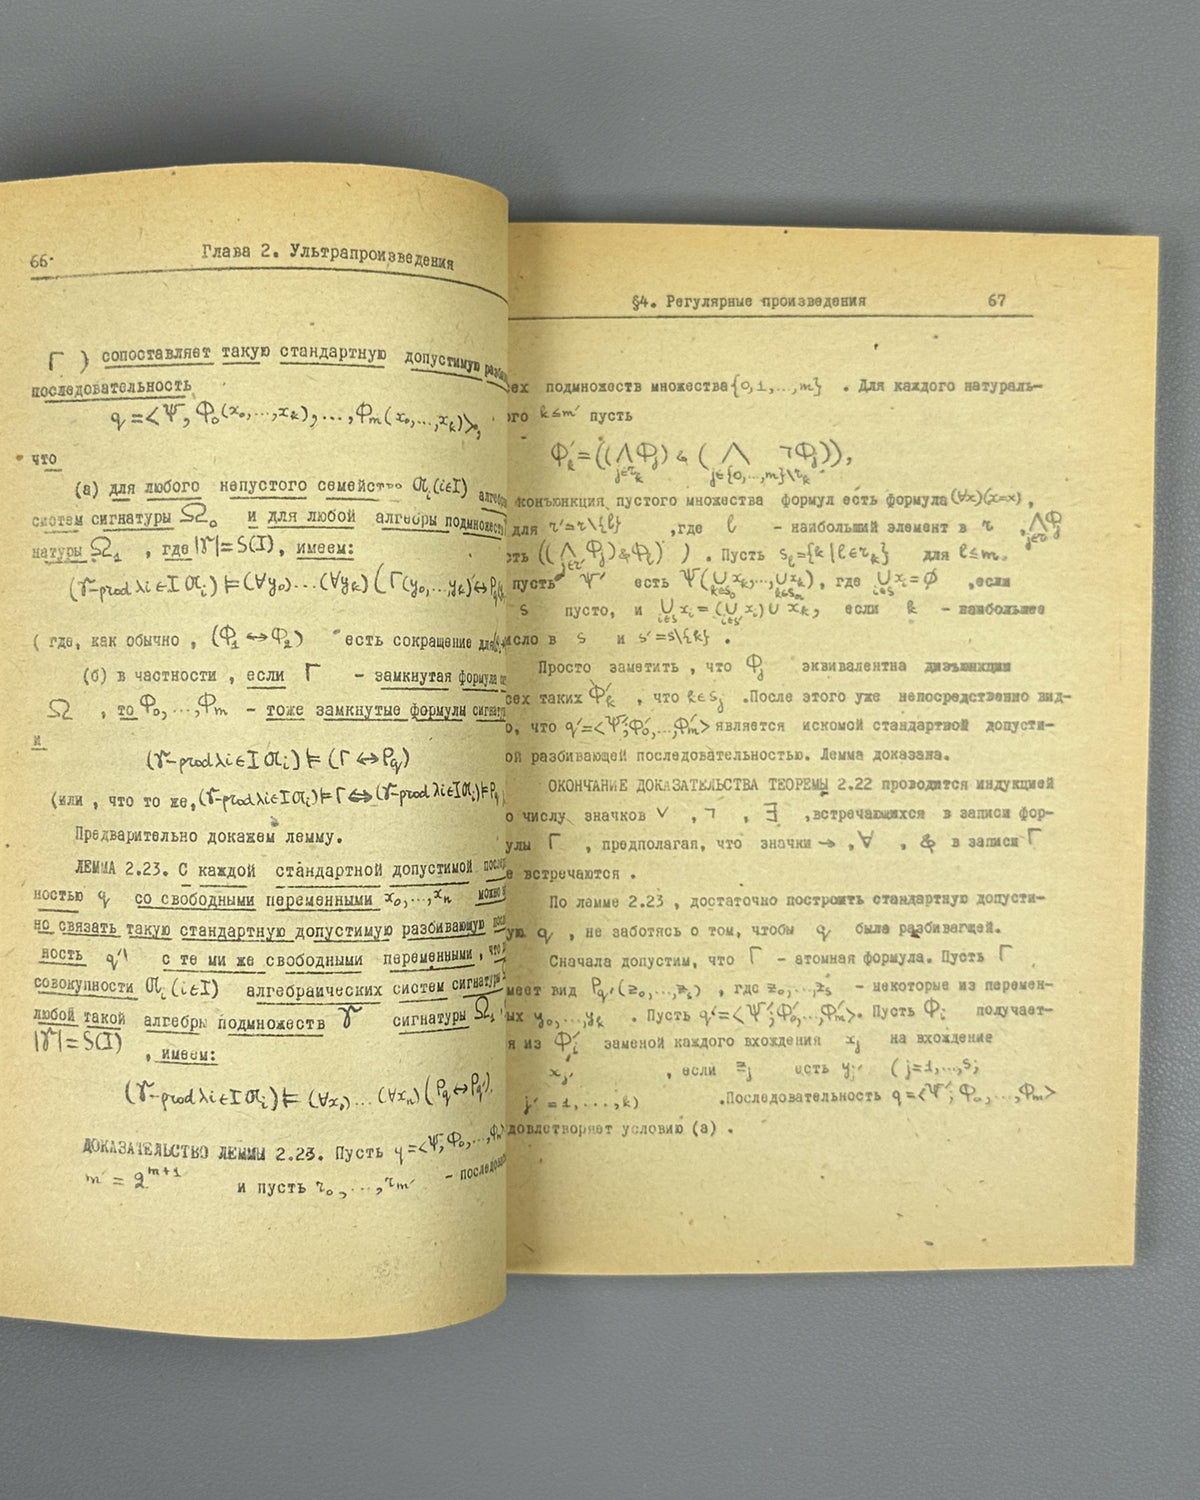 66
Глава 2. Ультрапроизведения
Г ) сопоставляет такую стандартную допустимую
последовательность
q = <Ψ, Φ₀(x₀,...,x_k),...,Φ_m(x₀,...,x_k)>,
что
(а) для любого непустого семейство 𝔄_i (i∈I)
систем сигнатуры Ω₀ и для любой алгебры подмножеств
натуры Ω₁ , где |𝔯|=S(I), имеем:
(𝔯-prod λi∈I 𝔄_i) ⊨ (∀y₀)...(∀y_k)(Γ(y₀,...,y_k)↔P_q
( где, как обычно , (Φ₁ ↔ Φ₂) есть сокращение для
(б) в частности , если Γ - замкнутая формула
Ω , то Φ₀,...,Φ_m - тоже замкнутые формулы
и
(𝔯-prod λi∈I 𝔄_i) ⊨ (Γ ↔ P_q)
(или , что то же, (𝔯-prod λi∈I 𝔄_i)⊨Γ ⟺ (𝔯-prod λi∈I 𝔄_i)⊨P_q
Предварительно докажем лемму.
ЛЕММА 2.23. С каждой стандартной допустимой
ностью q со свободными переменными x₀,...,x_n можно
но связать такую стандартную допустимую разбивающую
ность q' с те ми же свободными переменными , что
совокупности 𝔄_i (i∈I) алгебраических систем сигнатуры
любой такой алгебры подмножеств 𝔯 сигнатуры Ω₁
|𝔯|=S(I) , имеем:
(𝔯-prod λi∈I 𝔄_i) ⊨ (∀x₀)...(∀x_n)(P_q ↔ P_q').
ДОКАЗАТЕЛЬСТВО ЛЕММЫ 2.23. Пусть q=<Ψ, Φ₀,...,Φ_m>
m' = 2^{m+1} и пусть r₀,...,r_m' -
§4. Регулярные произведения
67
ех подмножеств множества {0,1,...,m} . Для каждого натураль-
ого k≤m' пусть
Φ'_k=((∧_{j∈r_k} Φ_j) & (∧_{j∈{0,...,m}\r_k} ¬Φ_j)),
конъюнкция пустого множества формул есть формула (∀x)(x=x) ,
для r'=r\{l} ,где l - наибольший элемент в r , ∧_{j∈r} Φ_j
сть ((∧_{j∈r'} Φ_j)&Φ_l) ) . Пусть S_l={k|l∈r_k} для l≤m.
пусть Ψ' есть Ψ(∪_{k∈S₀} x_k,...,∪_{k∈S_m} x_k), где ∪_{i∈S} x_i=∅ ,если
s пусто, и ∪_{i∈S} x_i=(∪_{i∈S'} x_i)∪x_k, если k - наибольшее
исло в s и s'=s\{k} .
Просто заметить , что Φ_j эквивалентна дизъюнкции
сех таких Φ'_k , что k∈S_j .После этого уже непосредственно вид-
о, что q'=<Ψ',Φ'₀,...,Φ'_m'> является искомой стандартной допусти-
ой разбивающей последовательностью. Лемма доказана.
ОКОНЧАНИЕ ДОКАЗАТЕЛЬСТВА ТЕОРЕМЫ 2.22 проводится индукцией
о числу значков ∨ , ¬ , ∃ ,встречающихся в записи фор-
улы Γ , предполагая, что значки → , ∀ , & в записи Γ
е встречаются .
По лемме 2.23 , достаточно построить стандартную допусти-
ую q , не заботясь о том, чтобы q была разбивагщей.
Сначала допустим, что Γ - атомная формула. Пусть Γ
меет вид P_q'(z₀,...,z_s) , где z₀,...,z_s - некоторые из перемен-
ых y₀,...,y_k . Пусть q'=<Ψ',Φ'₀,...,Φ'_m>. Пусть Φ_i получает-
я из Φ'_i заменой каждого вхождения x_j на вхождение
x_j' , если z_j есть y_j' (j=1,...,s;
j'=1,...,k) .Последовательность q=<Ψ',Φ₀,...,Φ_m>
довлетворяет условию (а) .